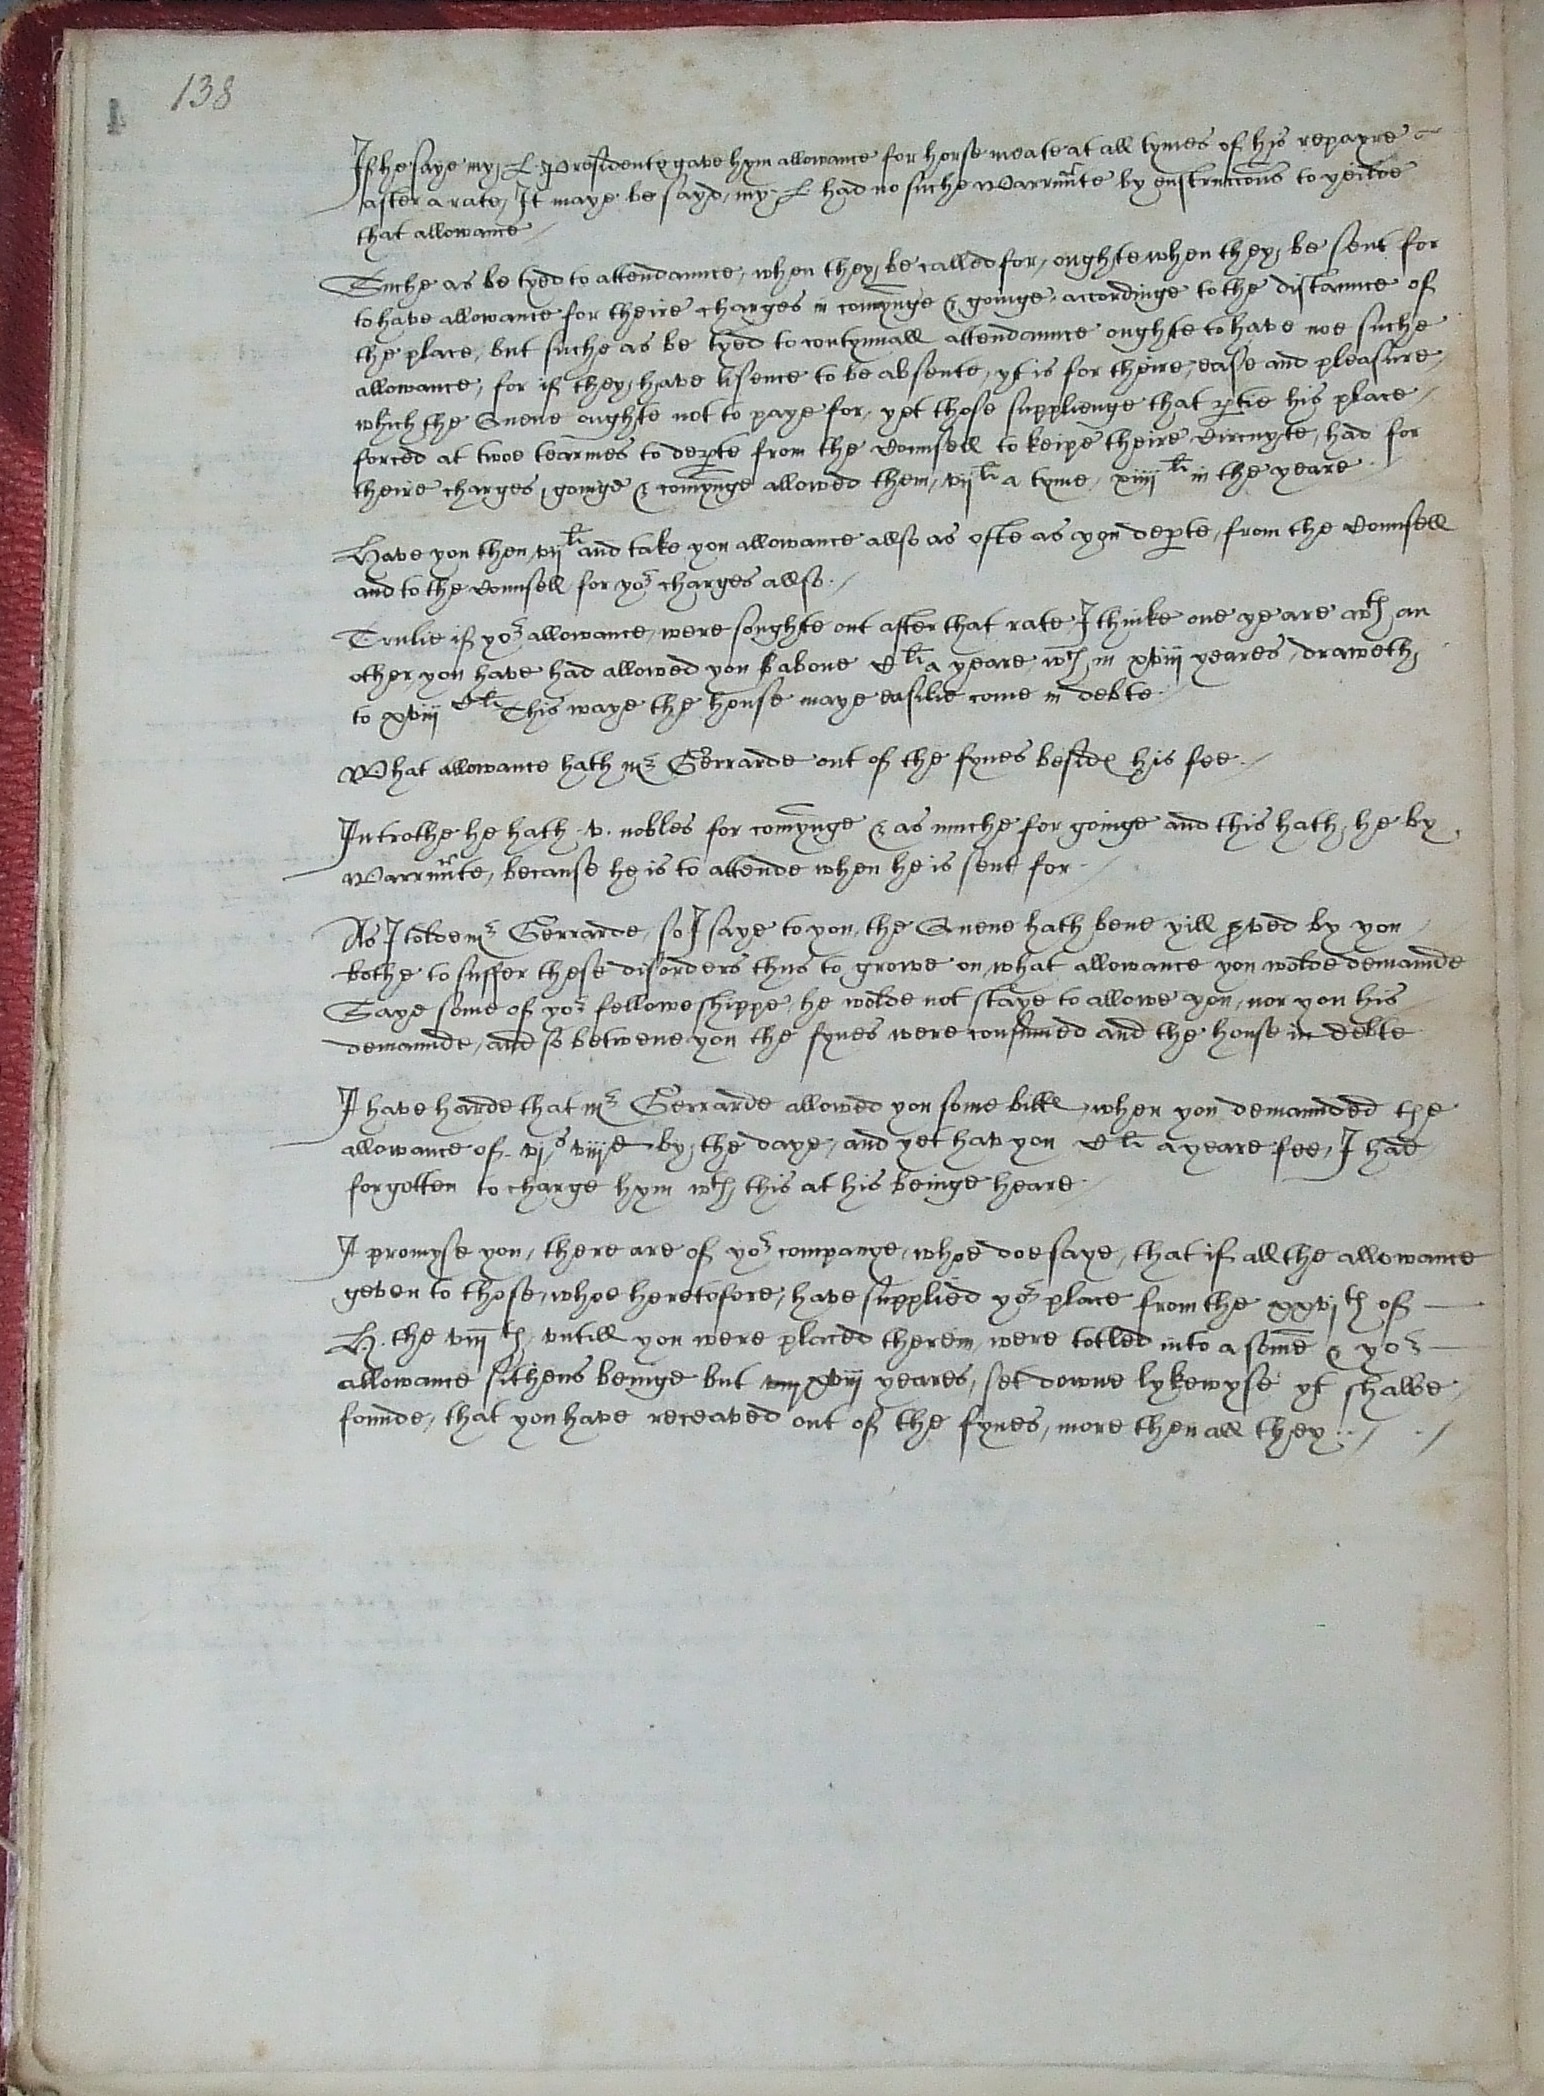 138
If he saye my L Presidente gave hym allowance for horse meate at all tymes of his repayre
after a rate, It maye be sayd, my L had no suche warrunte by enstruccons to yeilde
that allowance
Suche as be tyed to attendaunce, when they be called for, oughte when they be sent for
to have allowance for theire charges in comynge & goinge accordinge to the distaunce of
the place, but suche as be tyed to contynuall attendaunce oughte to have noe suche
allowance, for if they have lisence to be absente, yt is for theire ease and pleasure,
which the Quene oughte not to paye for, yet those supplienge that ptie his place
forced at twoe tearmes to depte from the Counsell to keipe theire Circuyte, had for
theire charges, goinge & comynge allowed them, vij li a tyme, xiiij li in the yeare
Have you then vij li and take you allowance allso as ofte as you depte, from the Counsell
and to the Counsell for yor charges allso.
Trulie if yor allowance, were soughte out after that rate I thinke one yeare wth an
other, you have had allowed you above C li a yeare, wch in xviij yeares, draweth
to xviij C li This waye the house maye easilie come in debte
What allowance hath mr Gerrarde out of the fynes beside his fee.
In trothe he hath .v. nobles for comynge & as muche for goinge and this hath he by
Warrunte, because he is to attende when he is sent for
As I tolde mr Gerrarde, so I saye to you, the Quene hath bene yill served by you
bothe to suffer these disorders thus to growe on, what allowance you wolde demaunde
Saye some of yor felloweshippe, he wolde not staye to allowe you, nor you his
demaunde, and so betwene you the fynes were consumed and the house in debte
I have harde that mr Gerrarde allowed you some bille, when you demaunded the
allowance of vjs viijd by the daye, and yet hav you C li a yeare fee, I had
forgotten to charge hym wth this at his beinge heare
I promyse you, there are of yor companye, whoe doe saye, that if all the allowance
geven to those, whoe heretofore, have supplied yor place from the xxvjth of
H. the viijth, vntill you were placed therein, were totled into a some & yor
allowance sithens beinge but xviij yeares, set downe lykewyse yt shalbe
founde, that you have receaved out of the fynes, more then all they